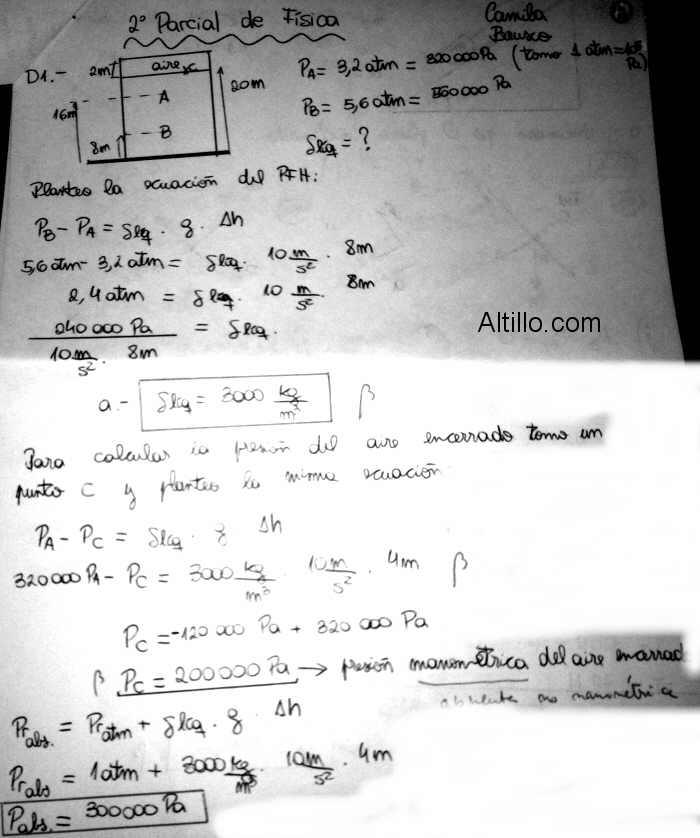 2º Parcial de Física
Camila
D1.- 2m aire xc
16m A 20m
B
8m
PA = 3,2 atm = 320 000 Pa (tomo 1 atm = 10⁵ Pa)
PB = 5,6 atm = 560 000 Pa
δliq = ?
Planteo la ecuación del PFH:
PB - PA = δliq. g. Δh
5,6 atm - 3,2 atm = δliq. 10 m/s² . 8m
2,4 atm = δliq. 10 m/s² . 8m
240 000 Pa / 10 m/s² . 8m = δliq.
Altillo.com
a.- δliq = 3000 kg/m³ β
Para calcular la presión del aire encerrado tomo un
punto C y planteo la misma ecuación
PA - PC = δliq . g Δh
320 000 PA - PC = 3000 kg/m³ . 10 m/s² . 4m β
PC = -120 000 Pa + 320 000 Pa
β PC = 200 000 Pa → presión manométrica del aire encerrad
absoluta no manométrica
Pr abs. = Pr atm + δliq . g . Δh
Pr abs = 1 atm + 3000 kg/m³ . 10 m/s² . 4m
Pabs. = 300 000 Pa